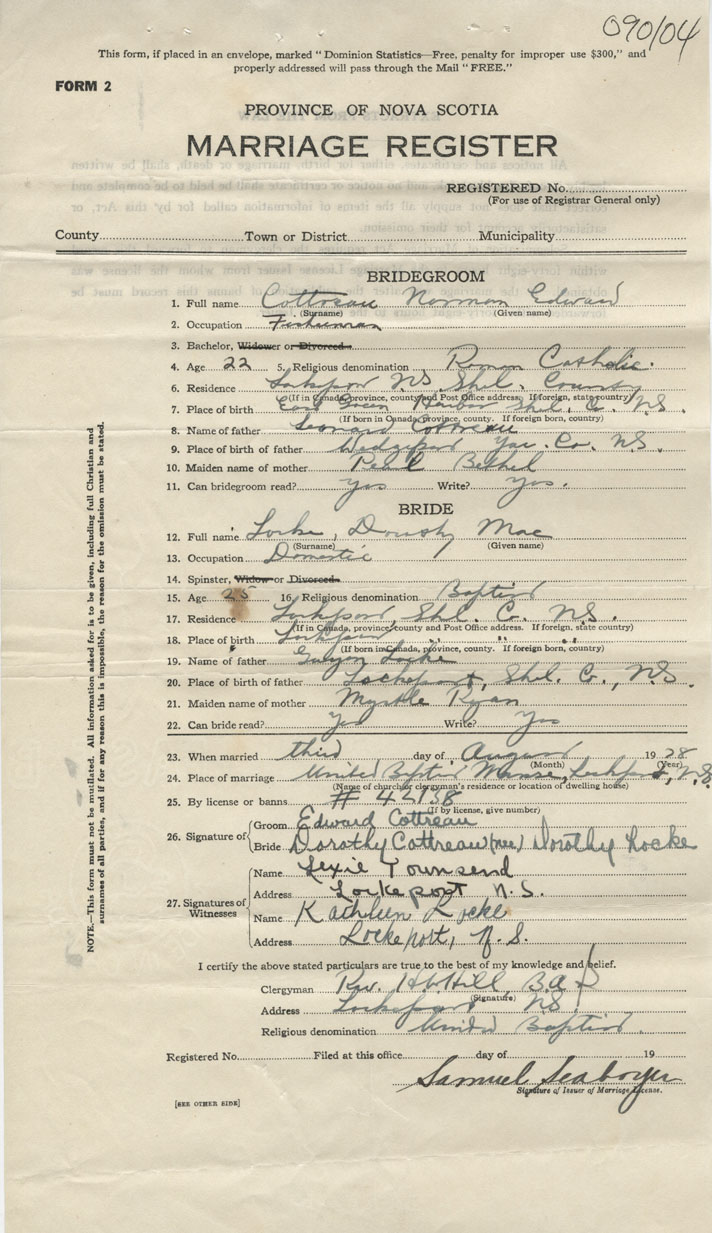 090/04
This form, if placed in an envelope, marked "Dominion Statistics—Free, penalty for improper use $300," and
properly addressed will pass through the Mail "FREE."
FORM 2
PROVINCE OF NOVA SCOTIA
MARRIAGE REGISTER
REGISTERED No.
(For use of Registrar General only)
County Town or District Municipality
BRIDEGROOM
1. Full name Cottreau Norman Edward
(Surname) (Given name)
2. Occupation Fisherman
3. Bachelor, Widower or Divorced
4. Age 22 5. Religious denomination Roman Catholic.
6. Residence Lockport NS Shel. County
(If in Canada, province, county and Post Office address. If foreign, state country)
7. Place of birth East Green Harbor Shel. Co. N.S.
(If born in Canada, province, county. If foreign born, country)
8. Name of father Leonard Cottreau
9. Place of birth of father Wedgeport Yar. Co. N.S.
10. Maiden name of mother Pearl Bethel
11. Can bridegroom read? yes Write? Yes.
BRIDE
12. Full name Locke, Dorothy Mae
(Surname) (Given name)
13. Occupation Domestic
14. Spinster, Widow or Divorced
15. Age 25 16. Religious denomination Baptist
17. Residence Lockport, Shel. C. N.S.
(If in Canada, province, county and Post Office address. If foreign, state country)
18. Place of birth Lockport " " "
(If born in Canada, province, county. If foreign born, country)
19. Name of father Locke
20. Place of birth of father Lockeport, Shel. Co., N.S.
21. Maiden name of mother Myrtle Ryan
22. Can bride read? Yes Write? Yes
23. When married third day of August 1928
(Month) (Year)
24. Place of marriage United Baptist Manse, Lockport, N.S.
(Name of church or clergyman's residence or location of dwelling house)
25. By license or banns # 42738
(If by license, give number)
26. Signature of
Groom Edward Cottreau
Bride Dorothy Cottreau (nee) Dorothy Locke
27. Signatures of Witnesses
Name Lexie Townsend
Address Lockeport N.S.
Name Kathleen Locke
Address Lockeport, N.S.
I certify the above stated particulars are true to the best of my knowledge and belief.
Clergyman Rev. H.W. Hill, B.A.
(Signature)
Address Lockeport NS
Religious denomination United Baptist
Registered No. Filed at this office day of 19
Samuel Seaboyer
Signature of Issuer of Marriage License.
[SEE OTHER SIDE]
NOTE.—This form must not be mutilated. All information asked for is to be given, including full Christian and
surnames of all parties, and if for any reason this is impossible, the reason for the omission must be stated.